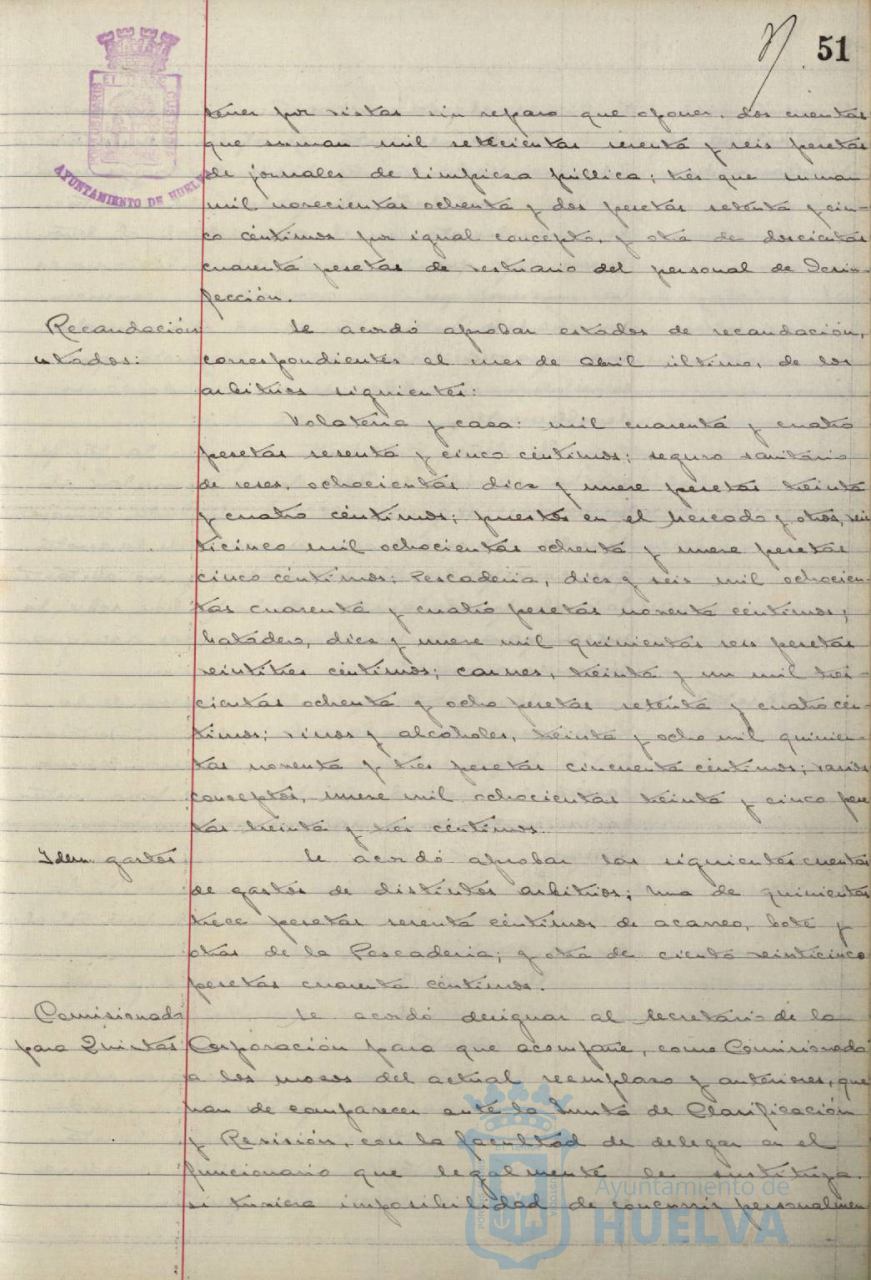 51
AYUNTAMIENTO DE HUELVA
tener por vistas sin reparo que oponer, dos cuentas
que suman mil setecientas sesenta y seis pesetas
de jornales de limpieza pública; tres que suman
mil novecientas ochenta y dos pesetas setenta y cin-
co céntimos por igual concepto, y otra de doscientas
cuarenta pesetas de vestuario del personal de Desin-
fección.
Recaudación
estados:
Se acordó aprobar estados de recaudación,
correspondientes al mes de Abril último, de los
arbitrios siguientes:
Volatería y caza: mil cuarenta y cuatro
pesetas sesenta y cinco céntimos; seguro sanitario
de reses, ochocientas diez y nueve pesetas treinta
y cuatro céntimos; puestos en el Mercado y otros, vein
ticinco mil ochocientas ochenta y nueve pesetas
cinco céntimos; Pescadería, diez y seis mil ochocien-
tas cuarenta y cuatro pesetas noventa céntimos;
Matadero, diez y nueve mil quinientas seis pesetas
veintitres céntimos; carnes, treinta y un mil tres-
cientas ochenta y ocho pesetas setenta y cuatro cén-
timos; vinos y alcoholes, treinta y ocho mil quinien-
tas noventa y tres pesetas cincuenta céntimos; varios
conceptos, nueve mil ochocientas treinta y cinco pese
tas treinta y tres céntimos.
Idem gastos
Se acordó aprobar las siguientes cuentas
de gastos de distintos arbitrios; una de quinientas
trece pesetas sesenta céntimos de acarreo, bote y
otras de la Pescadería; y otra de ciento veinticinco
pesetas cuarenta céntimos.
Comisionado
para Quintas
Se acordó designar al Secretario de la
Corporación para que acompañe, como Comisionado
a los mozos del actual reemplazo y anteriores, que
han de comparecer ante la Junta de Clasificación
y Revisión, con la facultad de delegar en el
funcionario que legalmente le sustituya,
si tuviera imposibilidad de concurrir personalmen
Ayuntamiento de
HUELVA